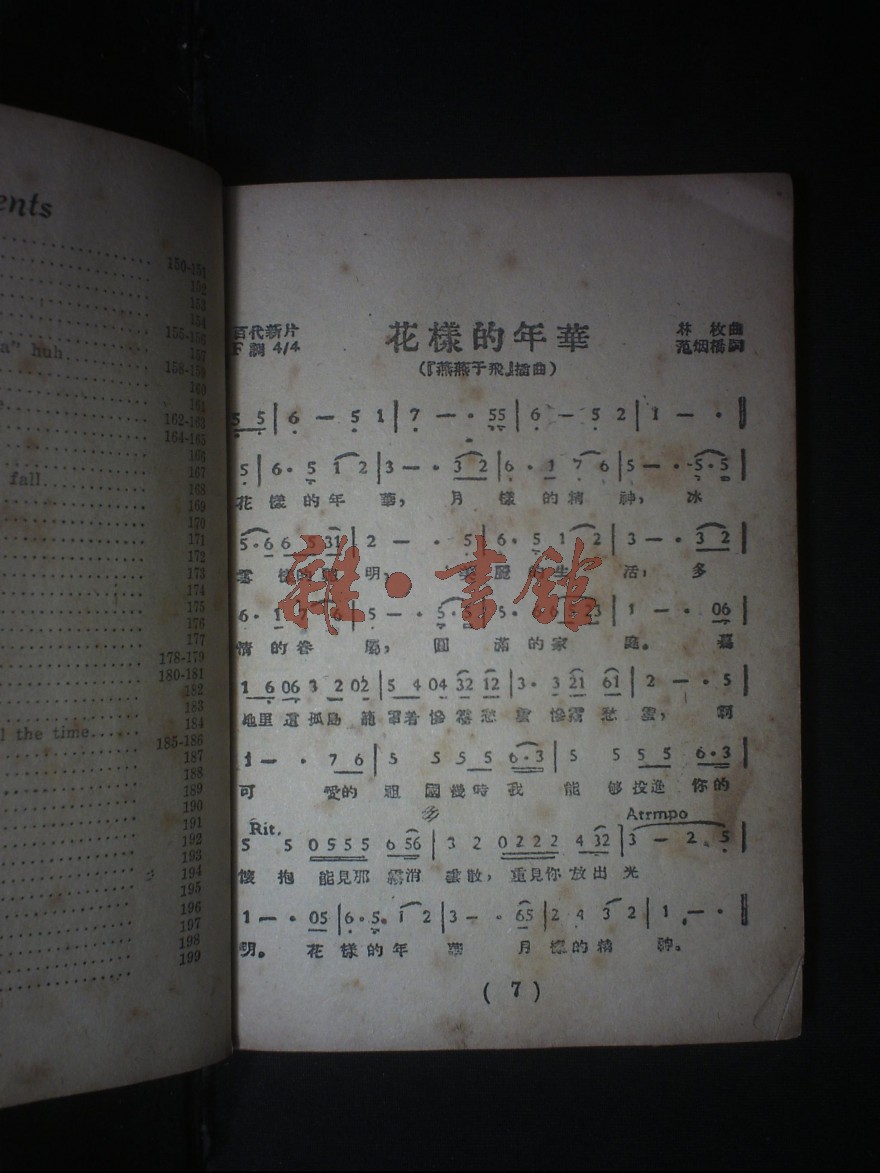 ents
150-151
152
153
154
155-156
a" huh
157
158-159
160
161
162-163
164-165
166
167
fall
168
169
170
171
172
173
174
175
176
177
178-179
180-181
182
183
184
l the time
185-186
187
188
189
190
191
192
193
194
195
196
197
198
199
百代新片
F 調 4/4
花樣的年華
(『燕燕于飛』插曲)
林枚曲
范烟橋詞
5 5 | 6 — 5 1 | 7 — · 55 | 6 — · 5 2 | 1 — ·
5 | 6 · 5 1 2 | 3 — · 3 2 | 6 · 1 7 6 | 5 — · 5 · 5
花樣的年華,月樣的精神,冰
5 · 6 6 5 31 | 2 — · 5 | 6 · 5 1 2 | 3 — · 3 2
雪樣的聰明,美麗的生活,多
6 · 1 7 6 | 5 — · 5 · 5 | 5 · 6 23 | 1 — · 06
情的眷屬,圓滿的家庭。驀
1 6 06 3 2 02 | 5 4 04 32 12 | 3 · 3 21 61 | 2 — · 5
地里這孤島籠罩着慘霧愁雲慘霧愁雲,啊
1 — · 7 6 | 5 5 5 5 6·3 | 5 5 5 5 6·3
可愛的祖國幾時我能够投進你的
鄉
Rit.
Atrmpo
5 5 0 5 5 5 6 56 | 3 2 0 2 2 2 4 32 | 3 — 2 5
懷抱能見那霧消雲散,重見你放出光
1 — · 05 | 6 · 5 1 2 | 3 — · 65 | 2 4 3 2 | 1 — ·
明。花樣的年華月樣的精神。
( 7 )
雜·書館